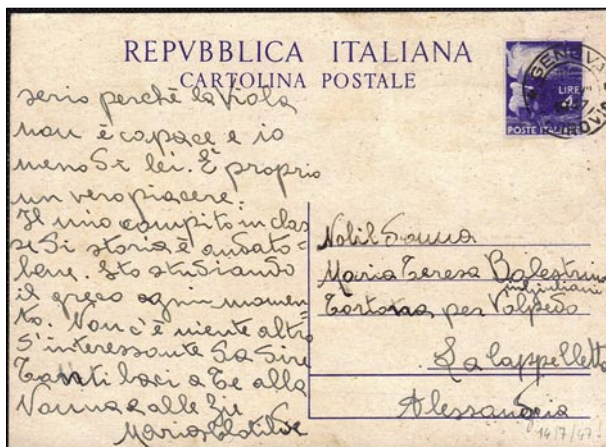 REPVBBLICA ITALIANA
CARTOLINA POSTALE
GENOVA
LIRE
4
POSTE ITALIANE
serio perchè la Viola
non è capace e io
meno di lei. È proprio
un vero piacere.
Il mio compito in clas
se di storia è andato
bene. Sto studiando
il greco ogni momen-
to. Non c'è niente altro
d'interessante da dire
Tanti baci a te alla
Nonna e alle zie
Maria Clotilde
Nobil Donna
Maria Teresa Balestrino
Tortona per Volpedo
La Cappelletta
Alessandria
14/7/47